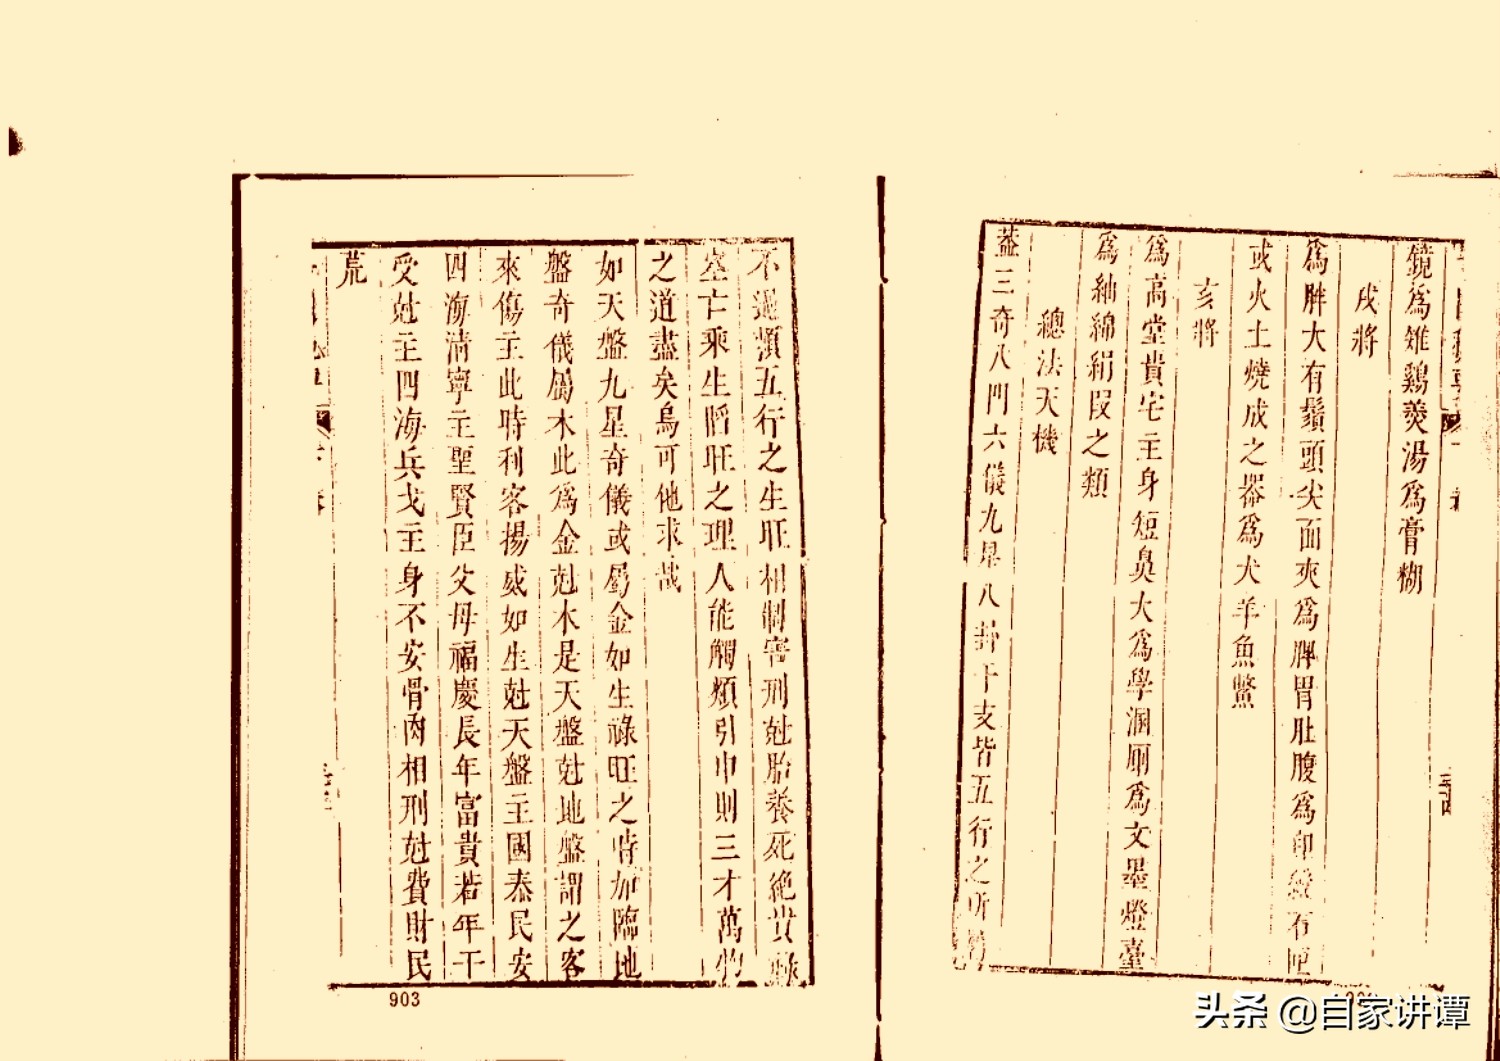 鏡為雉鷄羹湯為膏糊
戌將
為胖大有鬚頭尖面夾為脾胃肚腹為印綬石
或火土燒成之器為犬羊魚鱉
亥將
為高堂貴宅主身短鼻大為學溷厠為文墨燈臺
為紬綿絹段之類
總法天機
葢三奇八門六儀九星八卦干支皆五行之所
不過類五行之生旺相制害刑尅胎養死絕貴祿
空亡乘生旺之理人能觸類引申則三才萬物
之道盡矣烏可他求哉
如天盤九星奇儀或屬金如生祿旺之時加臨地
盤奇儀屬木此為金尅木是天盤尅地盤謂之客
來傷主此時利客揚威如生尅天盤主國泰民安
四海清寧主聖賢臣父母福慶長年富貴若年干
受尅主四海兵戈主身不安骨肉相刑尅費財民
荒
903
头条 @自家讲谭